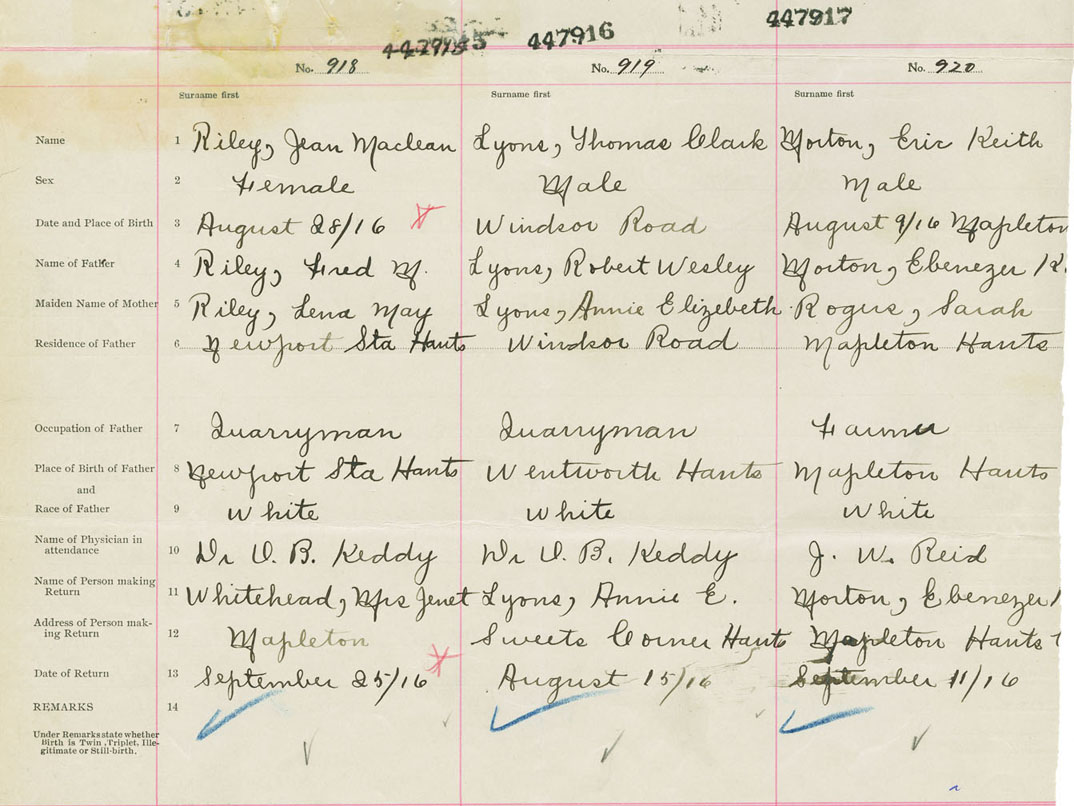 447915 447916 447917
No. 918 No. 919 No. 920
Surname first Surname first Surname first
Name 1 Riley, Jean Maclean Lyons, Thomas Clark Morton, Eric Keith
Sex 2 Female Male Male
Date and Place of Birth 3 August 28/16 Windsor Road August 9/16 Mapleton
Name of Father 4 Riley, Fred M. Lyons, Robert Wesley Morton, Ebenezer K.
Maiden Name of Mother 5 Riley, Lena May Lyons, Annie Elizebeth Rogers, Sarah
Residence of Father 6 Newport Sta Hants Windsor Road Mapleton Hants
Occupation of Father 7 Quarryman Quarryman Farmer
Place of Birth of Father 8 Newport Sta Hants Wentworth Hants Mapleton Hants
and
Race of Father 9 White White White
Name of Physician in
attendance 10 Dr O. B. Keddy Dr O. B. Keddy J. W. Reid
Name of Person making
Return 11 Whitehead, Mrs Jenet Lyons, Annie E. Morton, Ebenezer
Address of Person mak-
ing Return 12 Mapleton Sweets Corner Hants Mapleton Hants
Date of Return 13 September 25/16 August 15/16 September 11/16
REMARKS 14
Under Remarks state whether
Birth is Twin, Triplet, Ille-
gitimate or Still-birth.